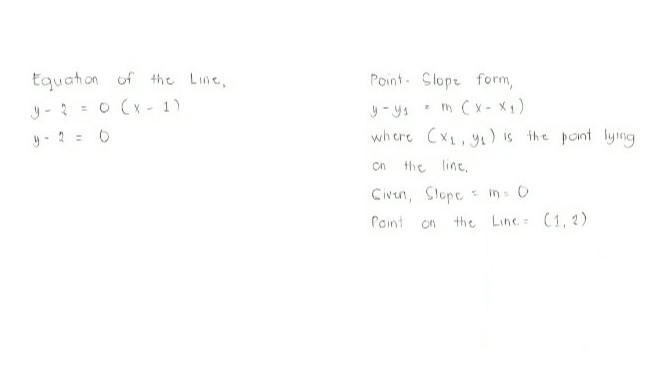 Equation of the Line,
y - 2 = 0 (x - 1)
y - 2 = 0
Point - Slope form,
y - y₁ = m (x - x₁)
where (x₁, y₁) is the point lying
on the line.
Given, Slope = m = 0
Point on the Line = (1, 2)